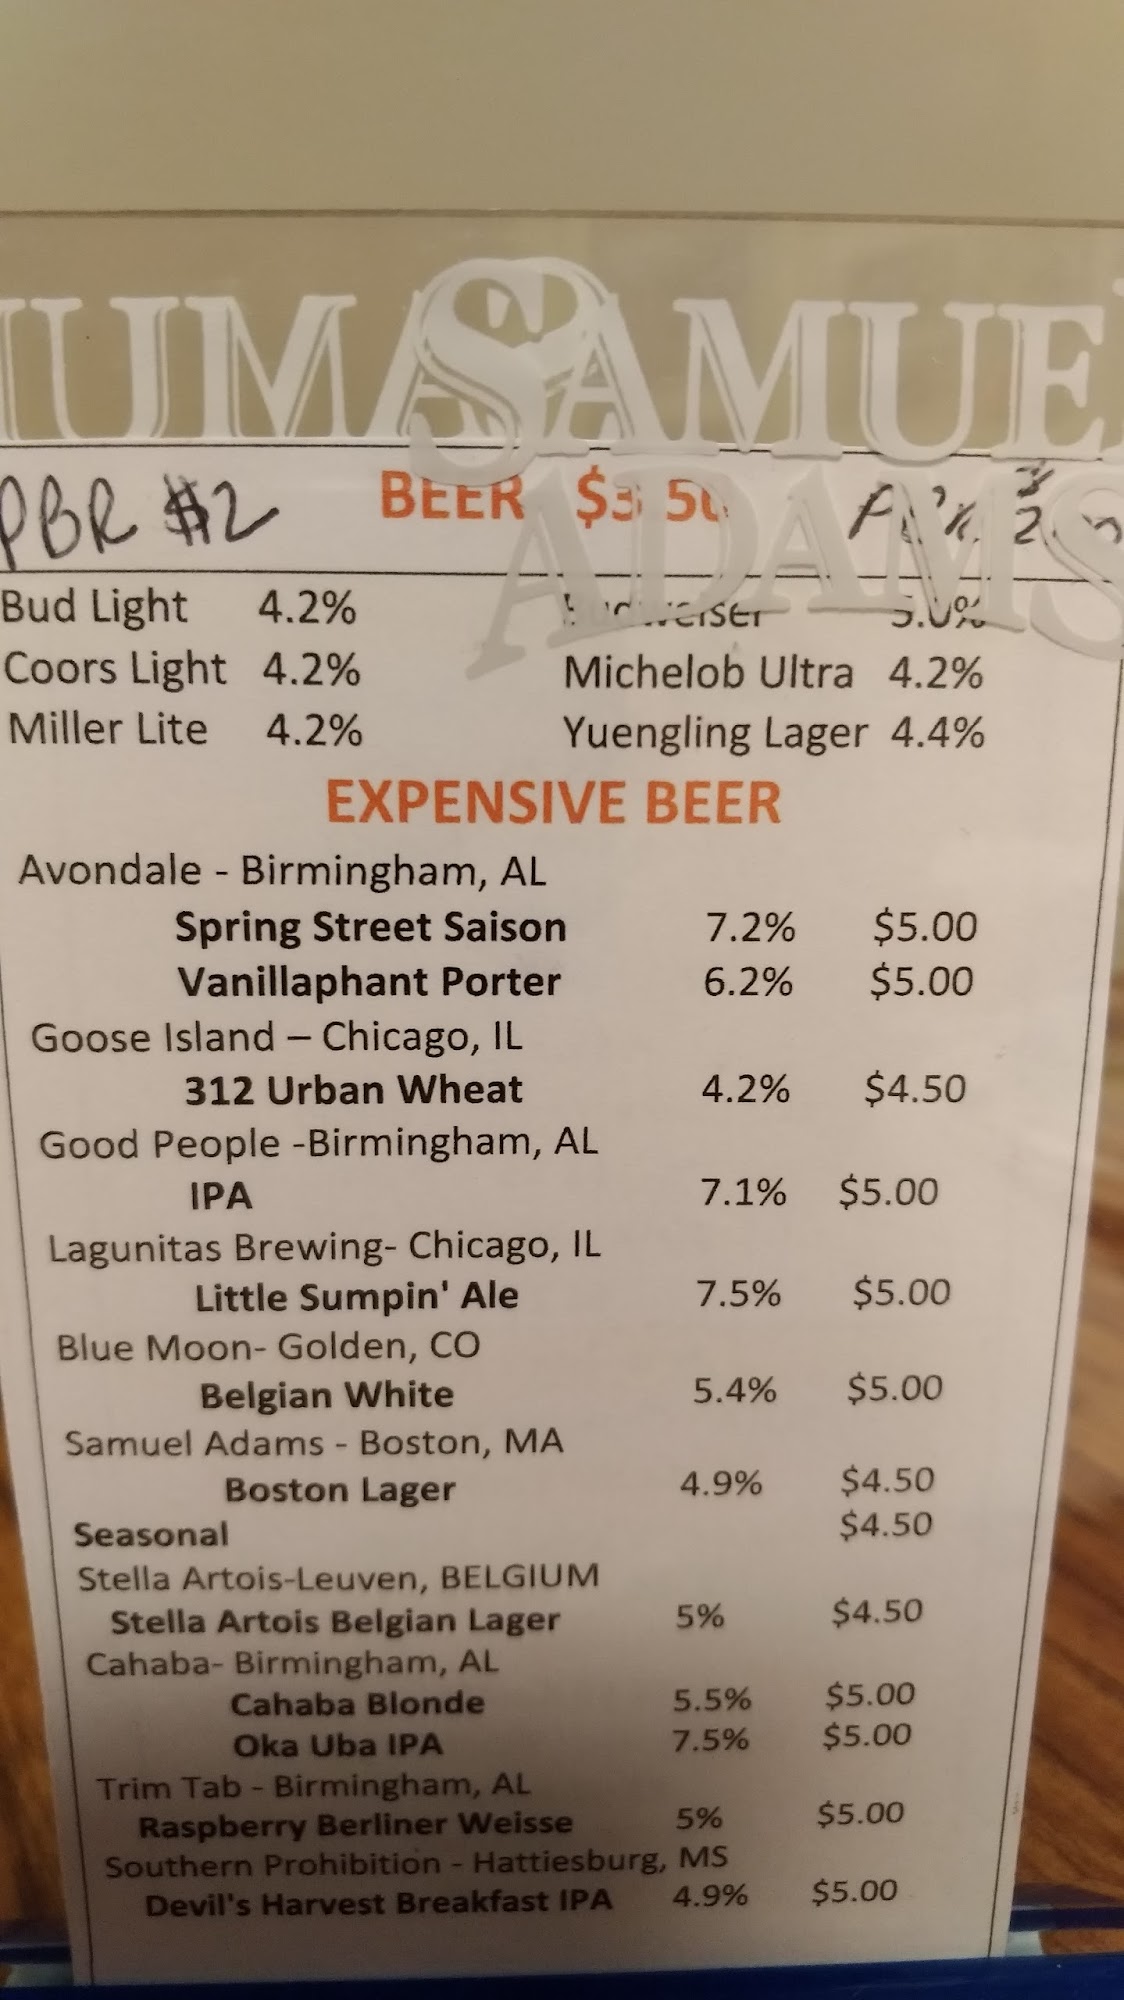 IUM SAMUE
ADAMS
PBR $2 BEER $3.50
Bud Light 4.2% Budweiser 5.0%
Coors Light 4.2% Michelob Ultra 4.2%
Miller Lite 4.2% Yuengling Lager 4.4%
EXPENSIVE BEER
Avondale - Birmingham, AL
Spring Street Saison 7.2% $5.00
Vanillaphant Porter 6.2% $5.00
Goose Island – Chicago, IL
312 Urban Wheat 4.2% $4.50
Good People -Birmingham, AL
IPA 7.1% $5.00
Lagunitas Brewing- Chicago, IL
Little Sumpin' Ale 7.5% $5.00
Blue Moon- Golden, CO
Belgian White 5.4% $5.00
Samuel Adams - Boston, MA
Boston Lager 4.9% $4.50
Seasonal $4.50
Stella Artois-Leuven, BELGIUM
Stella Artois Belgian Lager 5% $4.50
Cahaba- Birmingham, AL
Cahaba Blonde 5.5% $5.00
Oka Uba IPA 7.5% $5.00
Trim Tab - Birmingham, AL
Raspberry Berliner Weisse 5% $5.00
Southern Prohibition - Hattiesburg, MS
Devil's Harvest Breakfast IPA 4.9% $5.00